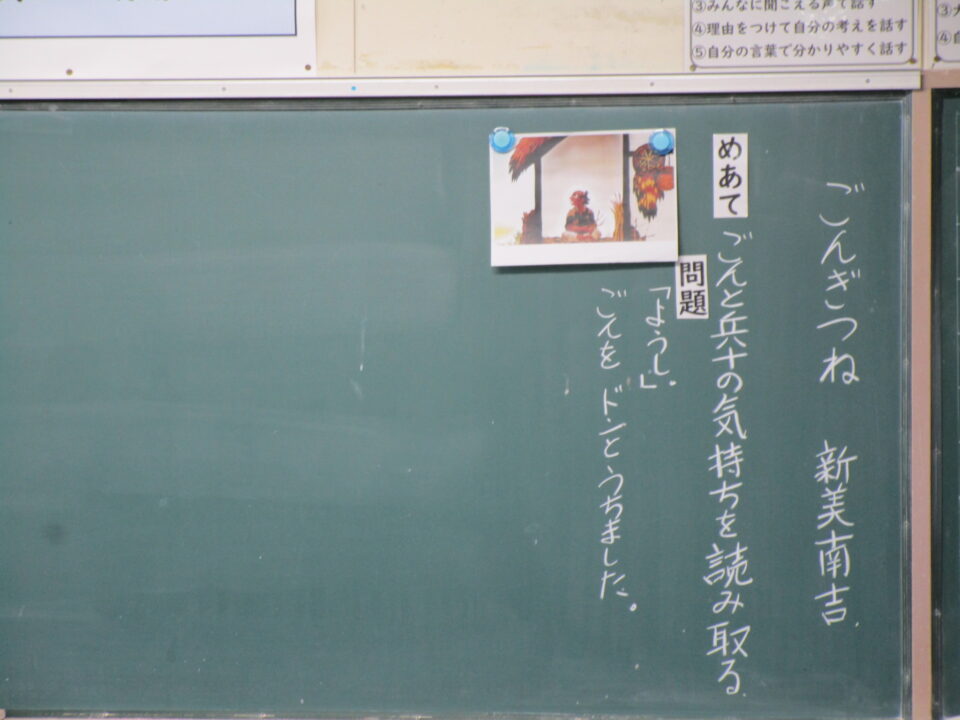 ③みんなに聞こえる声で話す
④理由をつけて自分の考えを話す
⑤自分の言葉で分かりやすく話す
ごんぎつね 新美南吉
めあて
ごんと兵十の気持ちを読み取る
問題
「ようし。」
ごんをドンとうちました。